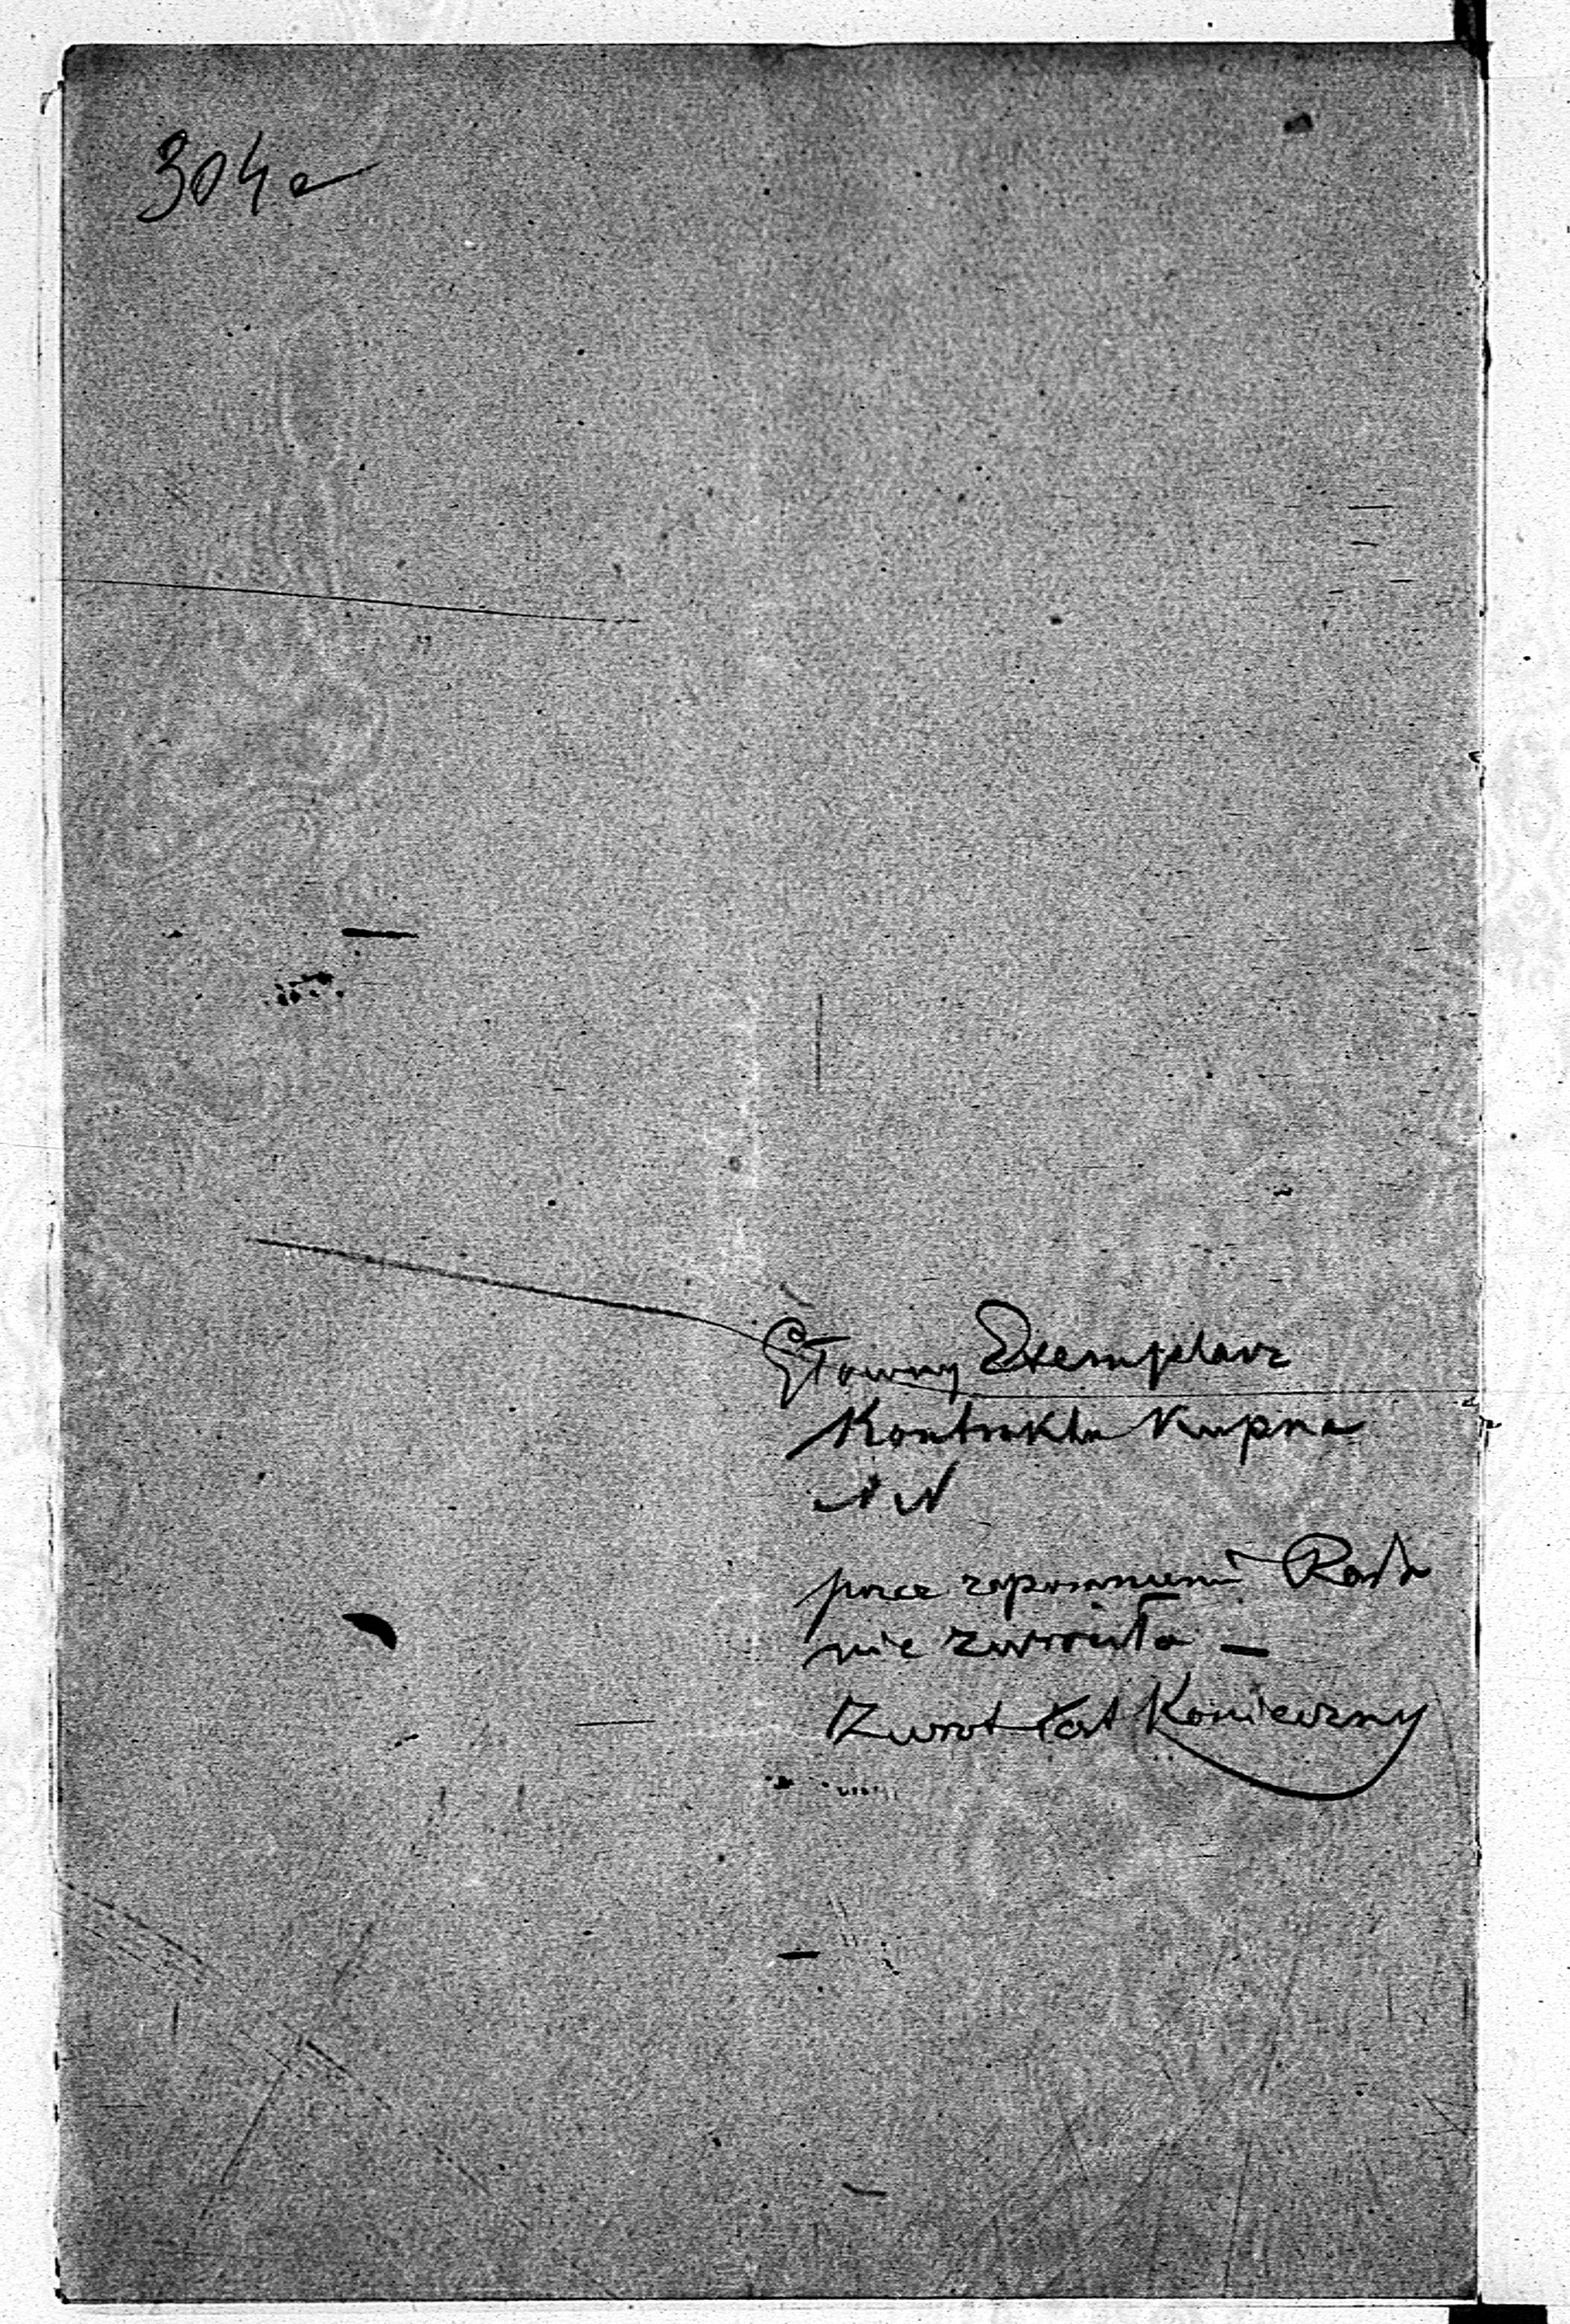 304a
Główny Exemplarz
Kontraktu Kupna
NN
przez zapomnienie Rada
nie zwróciła —
Zwrot jest Konieczny